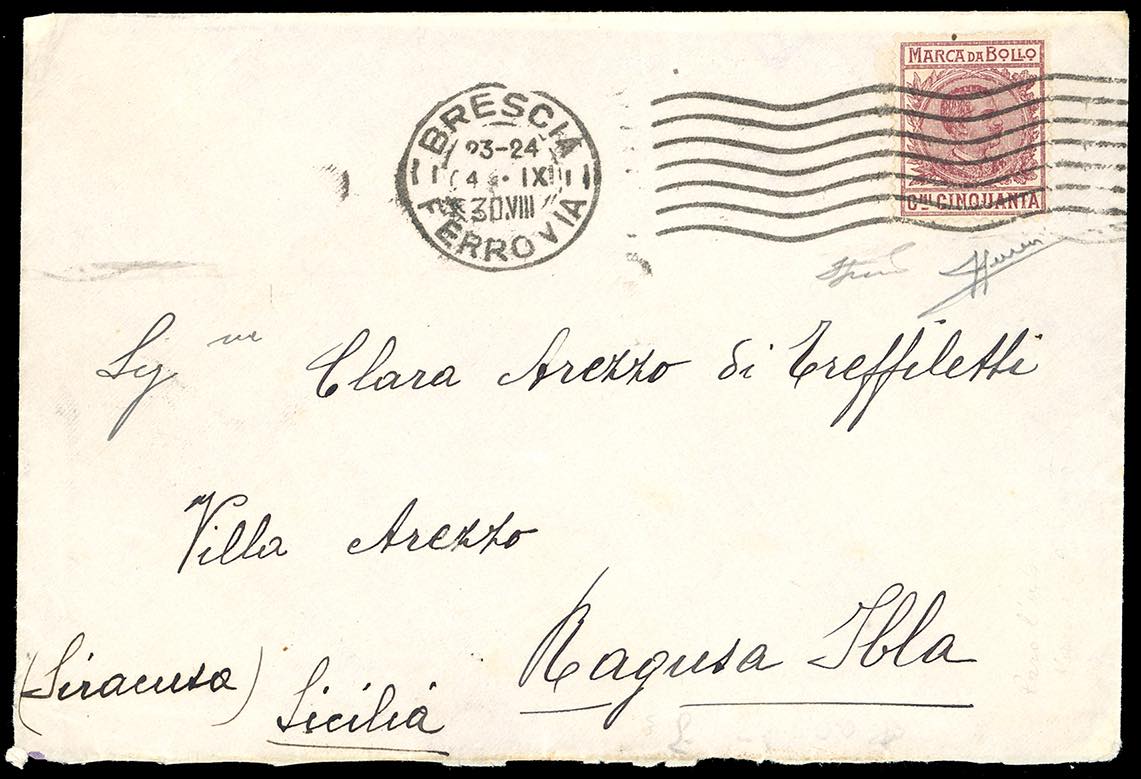 MARCA DA BOLLO
CMI CINQUANTA
BRESCIA
23-24
4 · IX
30.VIII
FERROVIA
Sig ra Clara Arezzo di Treffiletti
Villa Arezzo
Ragusa Ibla
(Siracusa)
Sicilia